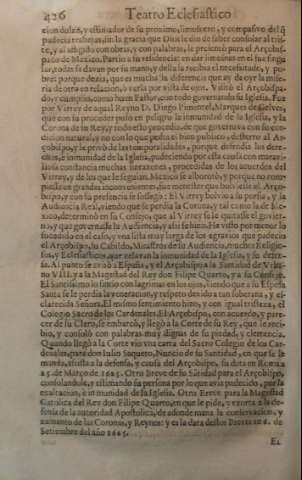 426 Teatro Eclesiastico
cion dulze, y estimador de su proximo, limosnero, y compasivo del q̃
padecia trabajos, sin la gracia que Dios le dio de saber consolar al tris-
te, y al afligido con obras, y con palabras, le presentò para el Arçobis-
pado de Mexico. Partiò a su residencia: en dar limosnas era su singu-
lar, todas se davan por su mano, y della la recibia el necesitado, y po-
bre: porque dezia, que es mucha la diferencia que ay de oyr la mise-
ria de otro en relacion, ò verla por vista de ojos. Visitò el Arçobispa-
do, y cumpliò, como buen Pastor, con todo govern ando su Iglesia. Fue
por Virrey de aquel Reyno D. Diego Pimentel, Marques de Gelves,
que con su proceder puso en peligro la inmunidad de la Iglesia, y la
Corona de su Rey, y todo esto procedia, de que governava con su con-
dicion natural, y no con lo que pedia el bien publico; desterrò al Ar-
çobispo, y le privò de las temporalidades, porque defendia los dere-
chos, è inmunidad de la Iglesia, padeciendo por esta causa con maravi-
llosa constancia muchas vexaciones, procedidas de los acuerdos del
Virrey, y de los que le seguian. Mexico se alborotò, y porque no rom-
piesse en grandes inconvenientes, fue menester que bolviesse el Arço-
bispo, y con su presencia se sossegò: El Virrey bolvia a su porfia, y la
Audiencia Real, viendo que se perdia la Corona, y tal como la de Me-
xico, determinò en su Consejo, que al Virrey se le quitasse el govier-
no, y que governasse la Audiencia, y assi se hizo. He visto por menor lo
sucedido en el caso, y una lista muy larga de los agravios que padeciò
el Arçobispo, su Cabildo, Ministros de la Audiencia, muchos Religio-
sos, y Eclesiasticos, que zelavan la inmunidad de la Iglesia, y su defen-
sa. Al punto se avisò a España, y el Arçobispo a la Santidad de Urba-
no VIII. y a la Magestad del Rey don Felipe Quarto, y a su Consejo.
El Santissimo lo sintiò con lagrimas en los ojos, viendo que a su Esposa
Santa se le perdia la veneracion, y respeto devido a tan soberana, y es-
clarecida Señora. El mismo sentimiento hizo, y con igual tristeza, el
Colegio Sacro de los Cardenales. El Arçobispo, con acuerdo, y pare-
cer de su Clero, se embarcò, y llegò a la Corte de su Rey, que le reci-
biò, y consolò con palabras muy dignas de su piedad, y clemencia.
Quando llegò a la Corte vio una carta del Sacro Colegio de los Car-
denales, para don Iulio Saqueto, Nuncio de su Santidad, en que se le
manda, assista a la defensa, y causa del Arçobispo, su data en Roma
a 5. de Março de 1625. Otro Breve de su Santidad para el Arçobispo,
consolandole, y estimando su persona por lo que avia padecido, por la
exaltacion, è inmunidad de la Iglesia. Otro Breve para la Magestad
Catolica del Rey don Filipe Quarto, en que le pide, y exorta a la de-
fensa de la autoridad Apostolica, de adonde mana la conservacion, y
aumento de las Coronas, y Reynos: y es la data destos
Setiembre del año 1625.
El